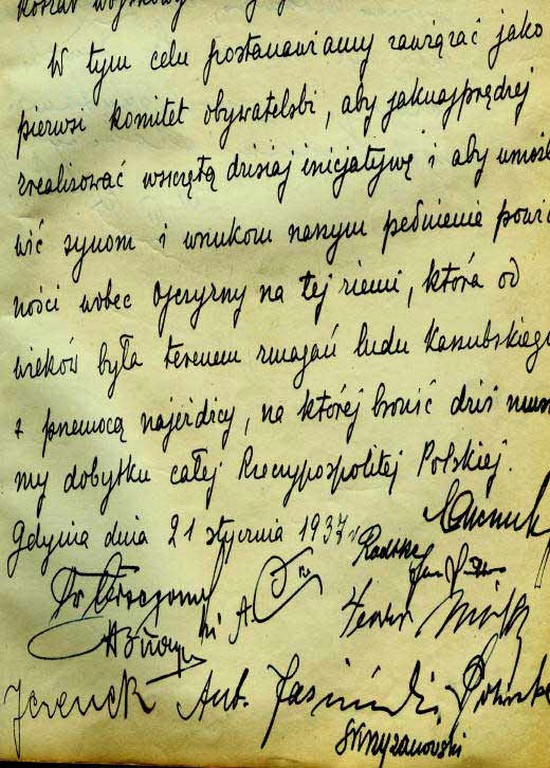 koszar wojskowy
W tym celu postanawiamy zawiązać jako
pierwszy komitet obywatelski, aby jaknajprędzej
zrealizować wszczętą dzisiaj inicjatywę i aby umożli
wić synom i wnukom naszym pełnienie powin
ności wobec Ojczyzny na tej ziemi, która od
wieków była terenem zmagań ludu Kaszubskiego
z przemocą najeźdźcy, na której bronić dziś musi
my dobytku całej Rzeczypospolitej Polskiej.
Gdynia dnia 21 stycznia 1937 r.
Dr
Ant. Jasiński
Skrzyżanowski